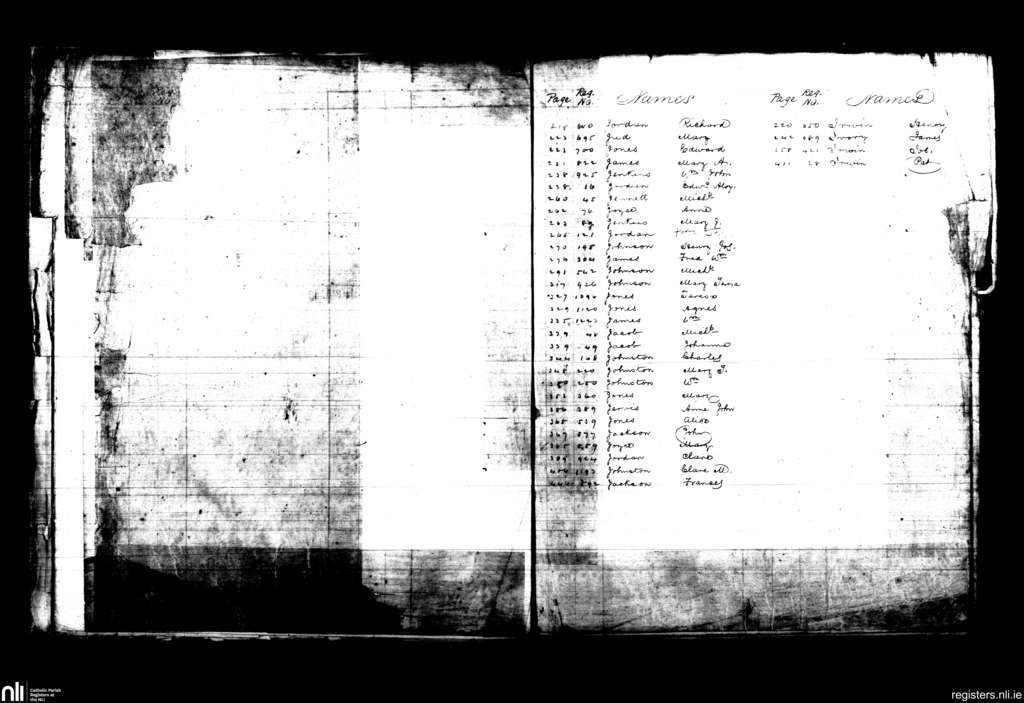 Page Reg. No. Names
218 600 Jordan Richard
223 695 Jred Mary
223 700 Jones Edward
231 822 James Mary A.
238 925 Jenkins Wm John
238 16 Jordan Edwd Aloy.
260 45 Jennett Michl
262 76 Joyce Anne
263 Jenkins Mary J.
265 121 Jordan
270 195 Johnson Henry Jos.
276 304 James Fred Wm
291 562 Johnson Michl
317 926 Johnson Mary Jane
327 1090 Jones Teresa
329 1120 Jones Agnes
335 1223 James Wm
339 48 Jacob Michl
339 49 Jacob Johanna
344 108 Johnston Charles
348 220 Johnston Mary J.
350 250 Johnston Wm
353 360 Jones Mary
356 389 Jarvis Anne John
365 539 Jones Alice
367 577 Jackson John
659 Joyce Mary
389 924 Jordan Clare
404 1193 Johnston Clare M.
444 592 Jackson Frances
Page Reg. No. Names
220 350 Irwin Henry
242 389 Ivory James
258 421 Irwin Jos.
411 28 Irwin Pat
nli Catholic Parish Registers at the NLI
registers.nli.ie